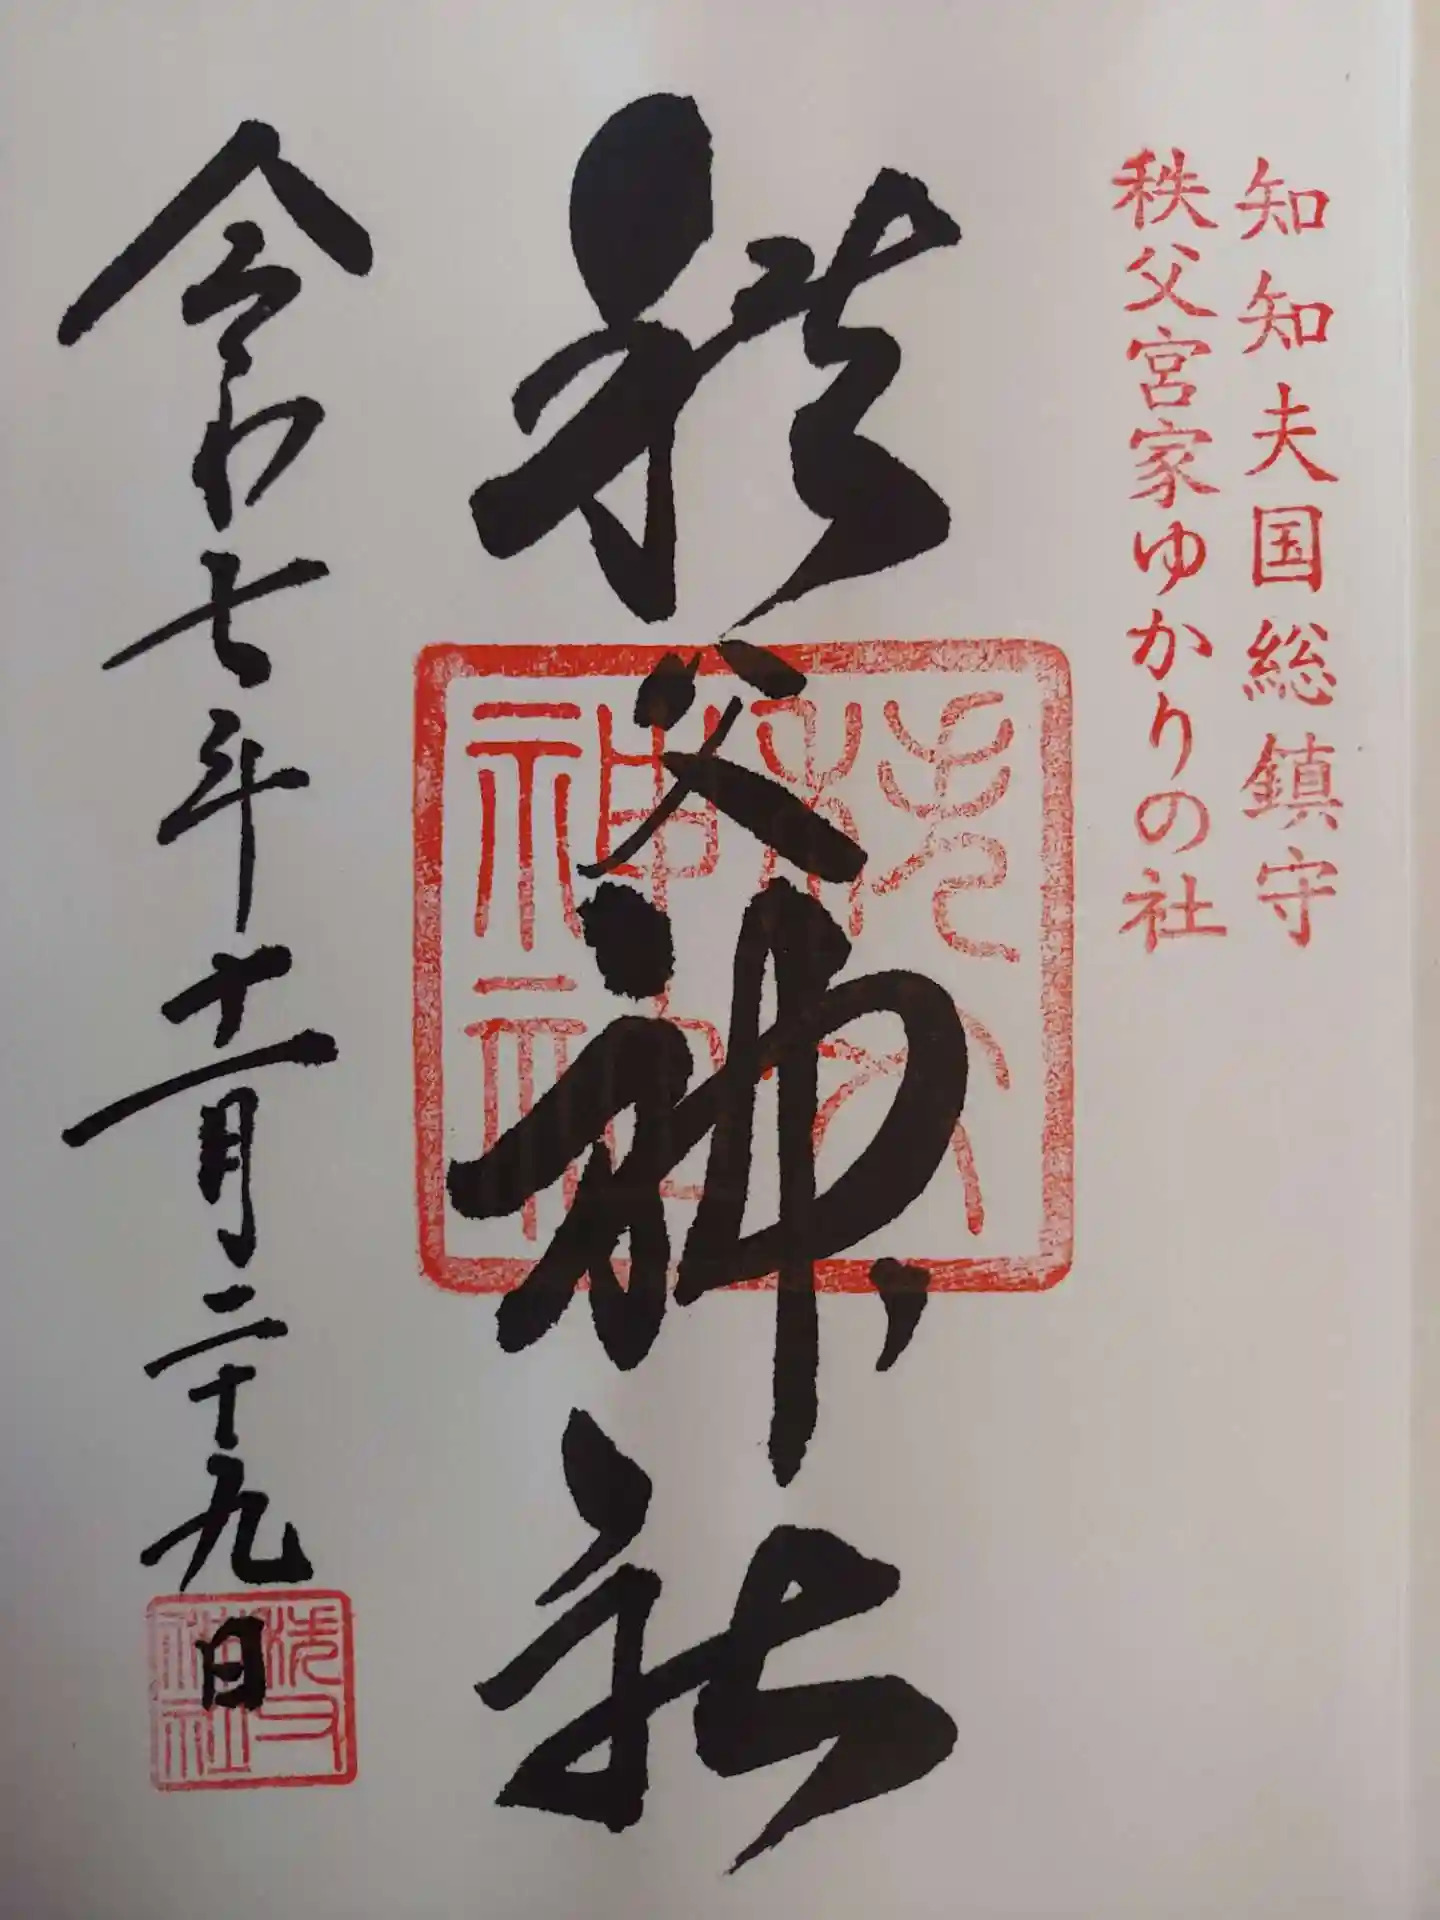 知知夫国総鎮守
秩父宮家ゆかりの社
秩父神社
秩父神社
令和七年十一月二十九日
秩父神社